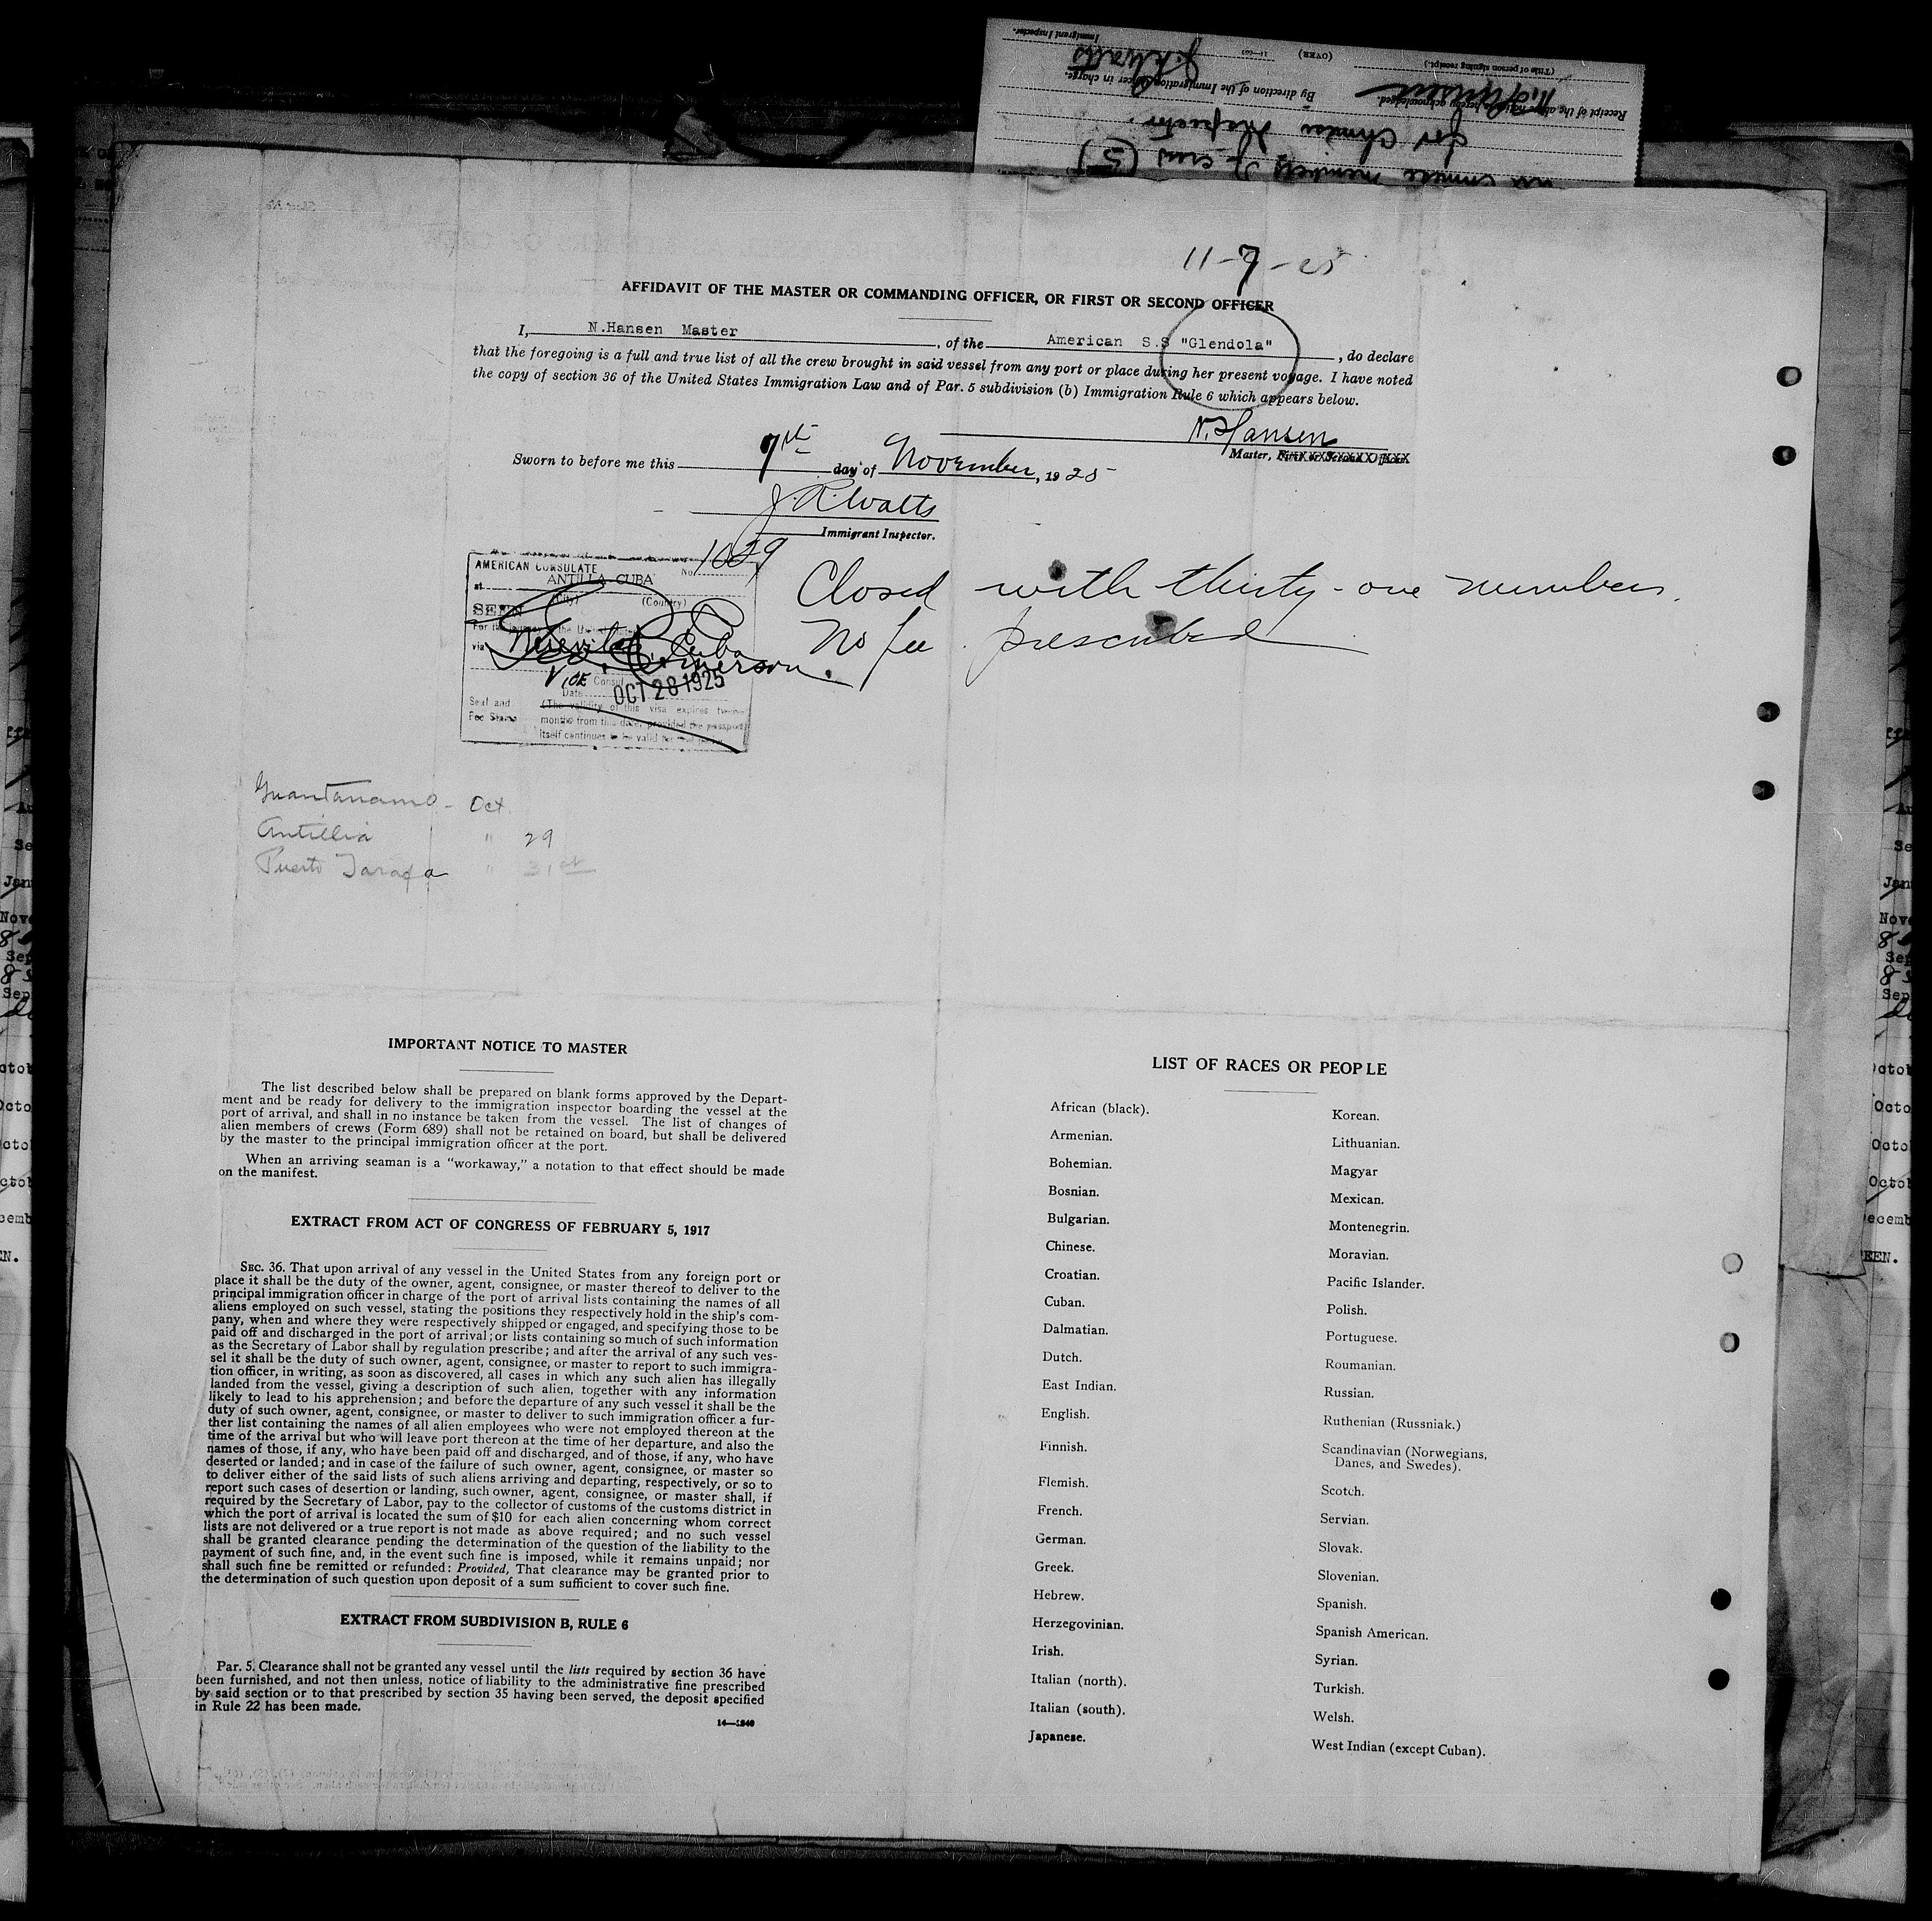 11-7-25
AFFIDAVIT OF THE MASTER OR COMMANDING OFFICER, OR FIRST OR SECOND OFFICER
I, N.Hansen Master, of the American S.S "Glendola", do declare
that the foregoing is a full and true list of all the crew brought in said vessel from any port or place during her present voyage. I have noted
the copy of section 36 of the United States Immigration Law and of Par. 5 subdivision (b) Immigration Rule 6 which appears below.
N. Hansen
Master, First or Second Officer.
Sworn to before me this 7th day of November, 1925
J. R. Watts
Immigrant Inspector.
AMERICAN CONSULATE No. 1029
at ANTILLA CUBA
(City) (Country)
SEEN
For the journey to the United States
via Nuevitas, Cuba
Vice Consul
Date OCT 28 1925
Seal and (The validity of this visa expires twelve
Fee Stamp months from this date, provided the passport
itself continues to be valid for that period
Closed with thirty-one numbers.
No fee prescribed
Guantanamo - Oct.
Antillia " 29
Puerto Tarafa " 31st
IMPORTANT NOTICE TO MASTER
The list described below shall be prepared on blank forms approved by the Depart-
ment and be ready for delivery to the immigration inspector boarding the vessel at the
port of arrival, and shall in no instance be taken from the vessel. The list of changes of
alien members of crews (Form 689) shall not be retained on board, but shall be delivered
by the master to the principal immigration officer at the port.
When an arriving seaman is a "workaway," a notation to that effect should be made
on the manifest.
EXTRACT FROM ACT OF CONGRESS OF FEBRUARY 5, 1917
SEC. 36. That upon arrival of any vessel in the United States from any foreign port or
place it shall be the duty of the owner, agent, consignee, or master thereof to deliver to the
principal immigration officer in charge of the port of arrival lists containing the names of all
aliens employed on such vessel, stating the positions they respectively hold in the ship's com-
pany, when and where they were respectively shipped or engaged, and specifying those to be
paid off and discharged in the port of arrival; or lists containing so much of such information
as the Secretary of Labor shall by regulation prescribe; and after the arrival of any such ves-
sel it shall be the duty of such owner, agent, consignee, or master to report to such immigra-
tion officer, in writing, as soon as discovered, all cases in which any such alien has illegally
landed from the vessel, giving a description of such alien, together with any information
likely to lead to his apprehension; and before the departure of any such vessel it shall be the
duty of such owner, agent, consignee, or master to deliver to such immigration officer a fur-
ther list containing the names of all alien employees who were not employed thereon at the
time of the arrival but who will leave port thereon at the time of her departure, and also the
names of those, if any, who have been paid off and discharged, and of those, if any, who have
deserted or landed; and in case of the failure of such owner, agent, consignee, or master so
to deliver either of the said lists of such aliens arriving and departing, respectively, or so to
report such cases of desertion or landing, such owner, agent, consignee, or master shall, if
required by the Secretary of Labor, pay to the collector of customs of the customs district in
which the port of arrival is located the sum of $10 for each alien concerning whom correct
lists are not delivered or a true report is not made as above required; and no such vessel
shall be granted clearance pending the determination of the question of the liability to the
payment of such fine, and, in the event such fine is imposed, while it remains unpaid; nor
shall such fine be remitted or refunded: Provided, That clearance may be granted prior to
the determination of such question upon deposit of a sum sufficient to cover such fine.
EXTRACT FROM SUBDIVISION B, RULE 6
Par. 5. Clearance shall not be granted any vessel until the lists required by section 36 have
been furnished, and not then unless, notice of liability to the administrative fine prescribed
by said section or to that prescribed by section 35 having been served, the deposit specified
in Rule 22 has been made.
14—1240
LIST OF RACES OR PEOPLE
African (black).
Armenian.
Bohemian.
Bosnian.
Bulgarian.
Chinese.
Croatian.
Cuban.
Dalmatian.
Dutch.
East Indian.
English.
Finnish.
Flemish.
French.
German.
Greek.
Hebrew.
Herzegovinian.
Irish.
Italian (north).
Italian (south).
Japanese.
Korean.
Lithuanian.
Magyar
Mexican.
Montenegrin.
Moravian.
Pacific Islander.
Polish.
Portuguese.
Roumanian.
Russian.
Ruthenian (Russniak.)
Scandinavian (Norwegians,
Danes, and Swedes).
Scotch.
Servian.
Slovak.
Slovenian.
Spanish.
Spanish American.
Syrian.
Turkish.
Welsh.
West Indian (except Cuban).
members of crew (5)
for Chinese Inspector.
Receipt of the above notice hereby acknowledged.
By direction of the Immigration Officer in charge.
N. Hansen
J. R. Watts
(Title of person signing receipt.)
(OVER)
Immigrant Inspector.